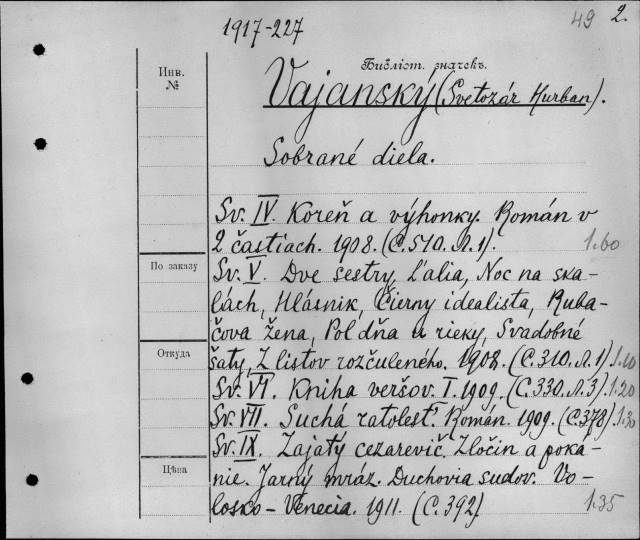 1917-227
49 2.
Библіот. значекъ.
Инв.
№
Vajanský (Svetozár Hurban).
Sobrané diela.
Sv. IV. Koreň a výhonky. Román v
2 častiach. 1908. (C. 510. Л. 1). 1.60
По заказу
Sv. V. Dve sestry, Ľalia, Noc na ska-
lách, Hlásnik, Čierny idealista, Ruba-
čova žena, Pol dňa u rieky, Svadobné
Откуда
šaty, Z listov rozčuleného. 1908. (C. 310. Л. 1) 1.10
Sv. VI. Kniha veršov. I. 1909. (C. 330. Л. 3). 1.20
Sv. VII. Suchá ratolesť. Román. 1909. (C. 378). 1.30
Sv. IX. Zajatý cezarevič. Zločin a poká-
Цѣна
nie. Jarný mráz. Duchovia sudov. Vo-
losko-Venecia. 1911. (C. 392) 1.35